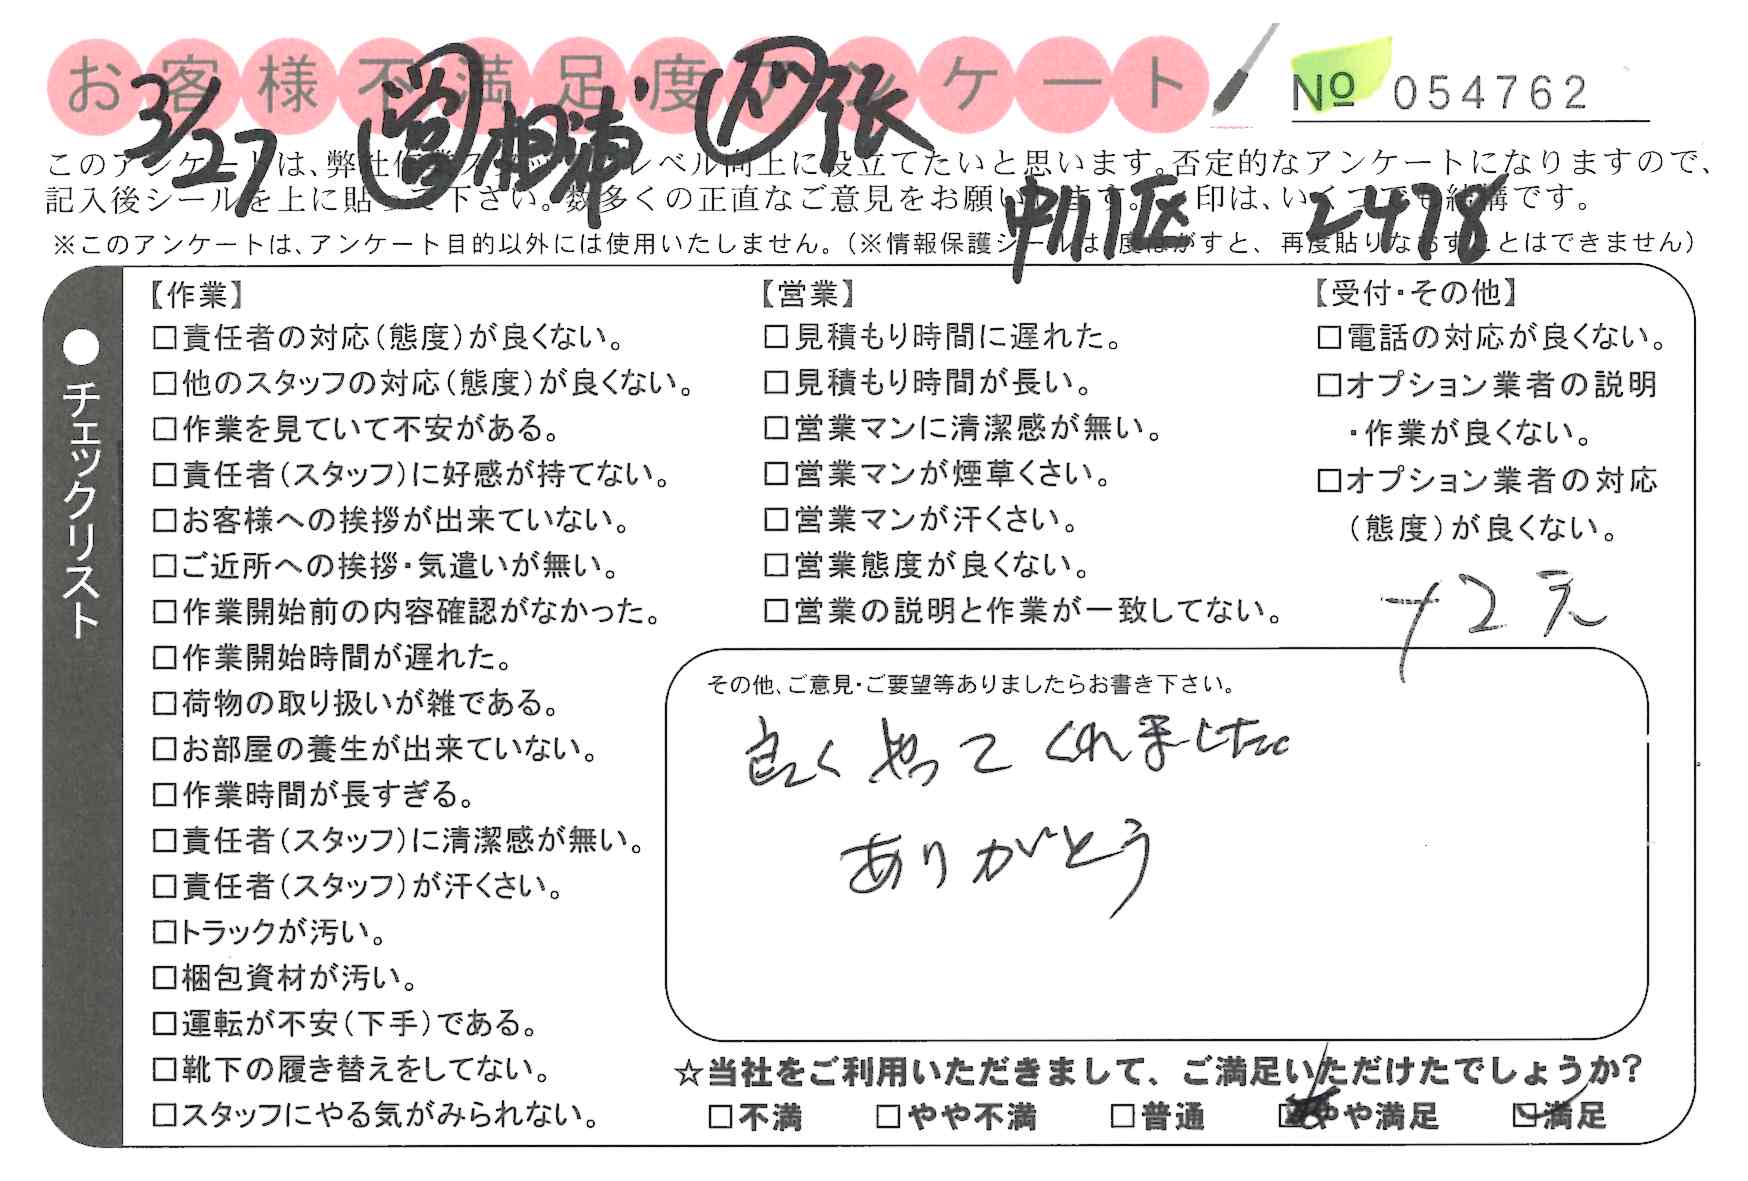 お客様不満足度アンケート
№ 054762
3/27
中川区 2478
このアンケートは、弊社作業スタッフのレベル向上に役立てたいと思います。否定的なアンケートになりますので、
記入後シールを上に貼って下さい。数多くの正直なご意見をお願いします。レ印は、いくつでも結構です。
※このアンケートは、アンケート目的以外には使用いたしません。(※情報保護シールは1度はがすと、再度貼りなおすことはできません)
●チェックリスト
【作業】
□責任者の対応(態度)が良くない。
□他のスタッフの対応(態度)が良くない。
□作業を見ていて不安がある。
□責任者(スタッフ)に好感が持てない。
□お客様への挨拶が出来ていない。
□ご近所への挨拶・気遣いが無い。
□作業開始前の内容確認がなかった。
□作業開始時間が遅れた。
□荷物の取り扱いが雑である。
□お部屋の養生が出来ていない。
□作業時間が長すぎる。
□責任者(スタッフ)に清潔感が無い。
□責任者(スタッフ)が汗くさい。
□トラックが汚い。
□梱包資材が汚い。
□運転が不安(下手)である。
□靴下の履き替えをしてない。
□スタッフにやる気がみられない。
【営業】
□見積もり時間に遅れた。
□見積もり時間が長い。
□営業マンに清潔感が無い。
□営業マンが煙草くさい。
□営業マンが汗くさい。
□営業態度が良くない。
□営業の説明と作業が一致してない。
【受付・その他】
□電話の対応が良くない。
□オプション業者の説明
・作業が良くない。
□オプション業者の対応
(態度)が良くない。
その他、ご意見・ご要望等ありましたらお書き下さい。
良くやってくれました。
ありがとう
☆当社をご利用いただきまして、ご満足いただけたでしょうか?
□不満 □やや不満 □普通 □やや満足 □満足